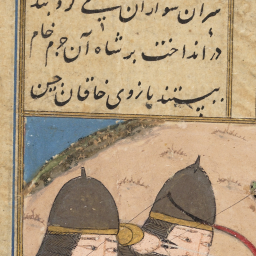 سران سواران پی کرد بند
در انداخت بر شاه آن چرم خام
ببستند بازوی خاقان چین